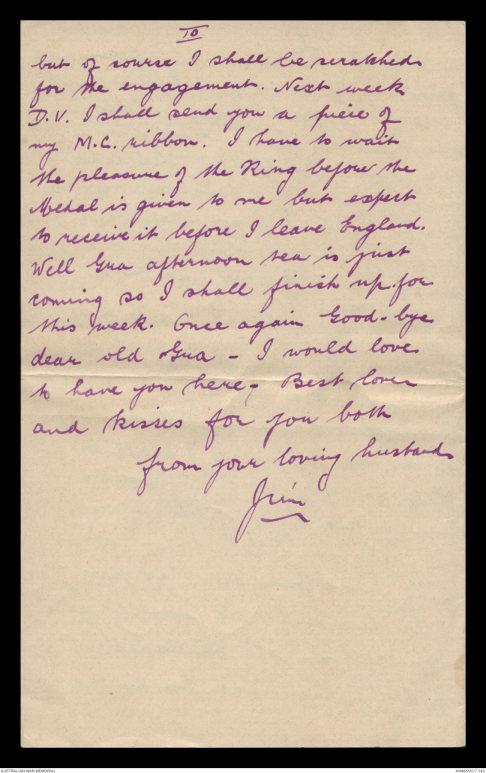 10
but of course I shall be scratched
for the engagement. Next week
D.V. I shall send you a piece of
my M.C. ribbon. I have to wait
the pleasure of the King before the
Medal is given to me but expect
to receive it before I leave England.
Well Gra afternoon tea is just
coming so I shall finish up for
this week. Once again Good-bye
dear old Gra - I would love
to have you here. Best love
and kisses for you both
from your loving husband
Jim
AUSTRALIAN WAR MEMORIAL